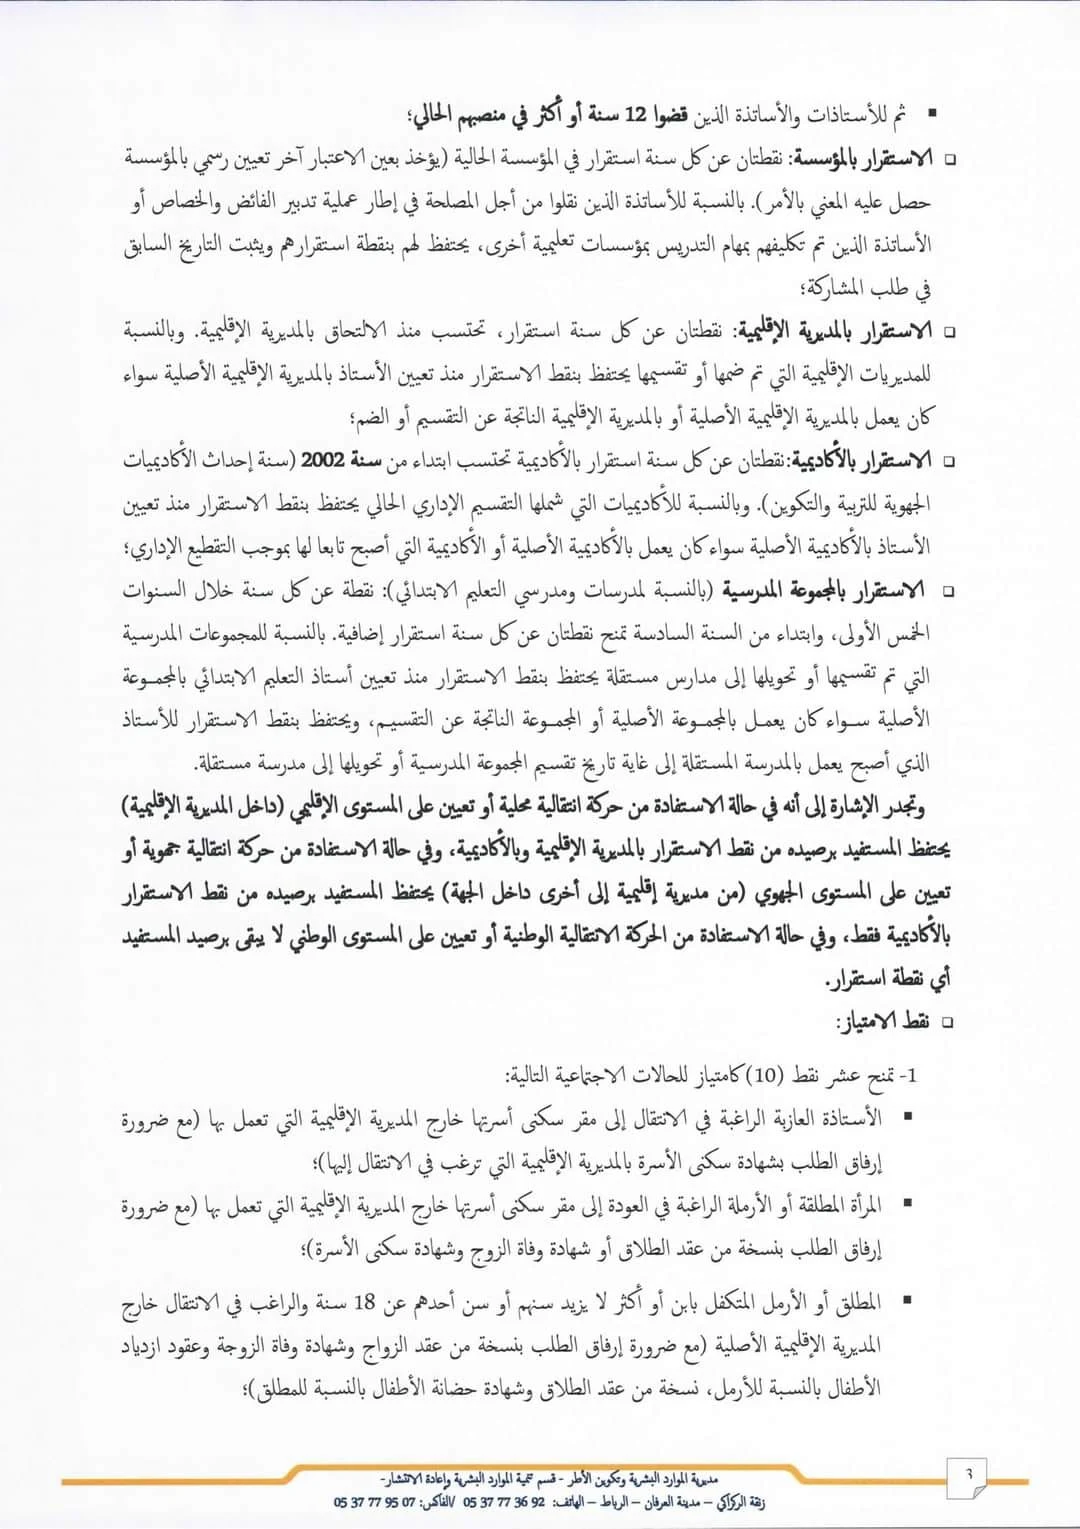 ▪ ثم للأستاذات والأساتذة الذين قضوا 12 سنة أو أكثر في منصبهم الحالي؛
❑ الاستقرار بالمؤسسة: نقطتان عن كل سنة استقرار في المؤسسة الحالية (يؤخذ بعين الاعتبار آخر تعيين رسمي بالمؤسسة
حصل عليه المعني بالأمر). بالنسبة للأساتذة الذين نقلوا من أجل المصلحة في إطار عملية تدبير الفائض والخصاص أو
الأساتذة الذين تم تكليفهم بمهام التدريس بمؤسسات تعليمية أخرى، يحتفظ لهم بنقطة استقرارهم ويثبت التاريخ السابق
في طلب المشاركة؛
❑ الاستقرار بالمديرية الإقليمية: نقطتان عن كل سنة استقرار، تحتسب منذ الالتحاق بالمديرية الإقليمية. وبالنسبة
للمديريات الإقليمية التي تم ضمها أو تقسيمها يحتفظ بنقط الاستقرار منذ تعيين الأستاذ بالمديرية الإقليمية الأصلية سواء
كان يعمل بالمديرية الإقليمية الأصلية أو بالمديرية الإقليمية الناتجة عن التقسيم أو الضم؛
❑ الاستقرار بالأكاديمية:نقطتان عن كل سنة استقرار بالأكاديمية تحتسب ابتداء من سنة 2002 (سنة إحداث الأكاديميات
الجهوية للتربية والتكوين). وبالنسبة للأكاديميات التي شملها التقسيم الإداري الحالي يحتفظ بنقط الاستقرار منذ تعيين
الأستاذ بالأكاديمية الأصلية سواء كان يعمل بالأكاديمية الأصلية أو الأكاديمية التي أصبح تابعا لها بموجب التقطيع الإداري؛
❑ الاستقرار بالمجموعة المدرسية (بالنسبة لمدرسات ومدرسي التعليم الابتدائي): نقطة عن كل سنة خلال السنوات
الخمس الأولى، وابتداء من السنة السادسة تمنح نقطتان عن كل سنة استقرار إضافية. بالنسبة للمجموعات المدرسية
التي تم تقسيمها أو تحويلها إلى مدارس مستقلة يحتفظ بنقط الاستقرار منذ تعيين أستاذ التعليم الابتدائي بالمجموعة
الأصلية سواء كان يعمل بالمجموعة الأصلية أو المجموعة الناتجة عن التقسيم، ويحتفظ بنقط الاستقرار للأستاذ
الذي أصبح يعمل بالمدرسة المستقلة إلى غاية تاريخ تقسيم المجموعة المدرسية أو تحويلها إلى مدرسة مستقلة.
وتجدر الإشارة إلى أنه في حالة الاستفادة من حركة انتقالية محلية أو تعيين على المستوى الإقليمي (داخل المديرية الإقليمية)
يحتفظ المستفيد برصيده من نقط الاستقرار بالمديرية الإقليمية وبالأكاديمية، وفي حالة الاستفادة من حركة انتقالية جهوية أو
تعيين على المستوى الجهوي (من مديرية إقليمية إلى أخرى داخل الجهة) يحتفظ المستفيد برصيده من نقط الاستقرار
بالأكاديمية فقط، وفي حالة الاستفادة من الحركة الانتقالية الوطنية أو تعيين على المستوى الوطني لا يبقى برصيد المستفيد
أي نقطة استقرار.
❑ نقط الامتياز:
1- تمنح عشر نقط (10)كامتياز للحالات الاجتماعية التالية:
▪ الأستاذة العازبة الراغبة في الانتقال إلى مقر سكنى أسرتها خارج المديرية الإقليمية التي تعمل بها (مع ضرورة
إرفاق الطلب بشهادة سكنى الأسرة بالمديرية الإقليمية التي ترغب في الانتقال إليها)؛
▪ المرأة المطلقة أو الأرملة الراغبة في العودة إلى مقر سكنى أسرتها خارج المديرية الإقليمية التي تعمل بها (مع ضرورة
إرفاق الطلب بنسخة من عقد الطلاق أو شهادة وفاة الزوج وشهادة سكنى الأسرة)؛
▪ المطلق أو الأرمل المتكفل بابن أو أكثر لا يزيد سنهم أو سن أحدهم عن 18 سنة والراغب في الانتقال خارج
المديرية الإقليمية الأصلية (مع ضرورة إرفاق الطلب بنسخة من عقد الزواج وشهادة وفاة الزوجة وعقود ازدياد
الأطفال بالنسبة للأرمل، نسخة من عقد الطلاق وشهادة حضانة الأطفال بالنسبة للمطلق)؛
3
مديرية الموارد البشرية وتكوين الأطر - قسم تنمية الموارد البشرية وإعادة الانتشار-
زنقة الركراكي – مدينة العرفان – الرباط – الهاتف: 05 37 77 36 92 /الفاكس: 05 37 77 95 07